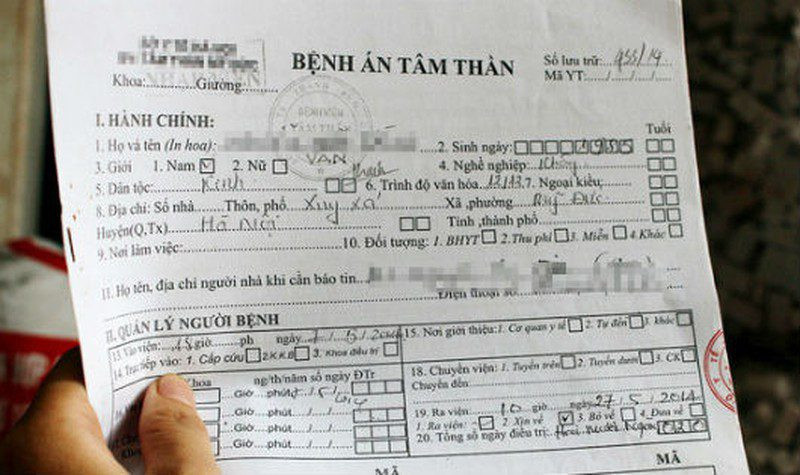 BỆNH ÁN TÂM THẦN
Số lưu trữ: 955/14
Mã YT:..../..../..../....
Khoa:............Giường:..........
I. HÀNH CHÍNH:
Tuổi
1. Họ và tên (In hoa): 2. Sinh ngày: 1985
3. Giới 1. Nam 2. Nữ 4. Nghề nghiệp: Không
5. Dân tộc: Kinh 6. Trình độ văn hóa: 12/12 7. Ngoại kiều:
8. Địa chỉ: Số nhà...... Thôn, phố Xuy Xá Xã, phường
Huyện(Q,Tx) Hà Nội Tỉnh, thành phố
9. Nơi làm việc: 10. Đối tượng: 1. BHYT 2. Thu phí 3. Miễn 4. Khác
11. Họ tên, địa chỉ người nhà khi cần báo tin
Điện thoại số
II. QUẢN LÝ NGƯỜI BỆNH
13. Vào viện: 15 giờ......ph ngày 7/5/2014
14. Trực tiếp vào: 1. Cấp cứu 2. K.K.B 3. Khoa điều trị
15. Nơi giới thiệu: 1. Cơ quan y tế 2. Tự đến 3. khác
Khoa ng/th/năm số ngày ĐTr
Giờ....phút 7/5/2014
Giờ....phút..../..../....
Giờ....phút..../..../....
Giờ....phút..../..../....
18. Chuyển viện: 1. Tuyến trên 2. Tuyến dưới 3. CK
Chuyển đến
19. Ra viện: 10 giờ ngày 27/5/2014
1. Ra viện: 2. Xin về 3. Bỏ về 4. Đưa về
20. Tổng số ngày điều trị: Hai mươi ngày 020
MÃ
MÃ